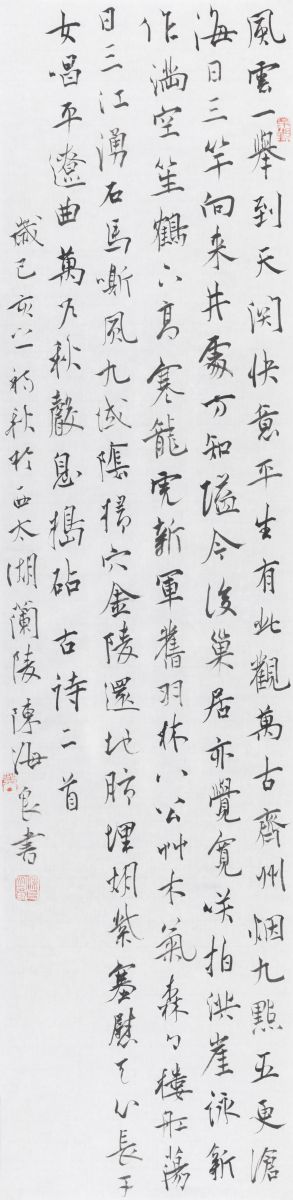 風雲一舉到天關快意平生有此觀萬古齊州烟九點五更滄
海日三竿向来井處方知隘今後巢居亦覺寬咲拍洪崖詠新
作滿空笙鶴下高寒龍虎新軍舊羽林八公艸木氣森々樓船蕩
日三江湧石馬嘶風九域陰掃穴金陵還地肺埋胡紫塞慰天心長干
女唱平遼曲萬戶秋聲息搗砧 古詩二首
歲己亥之初秋於西太湖蘭陵陳海良書